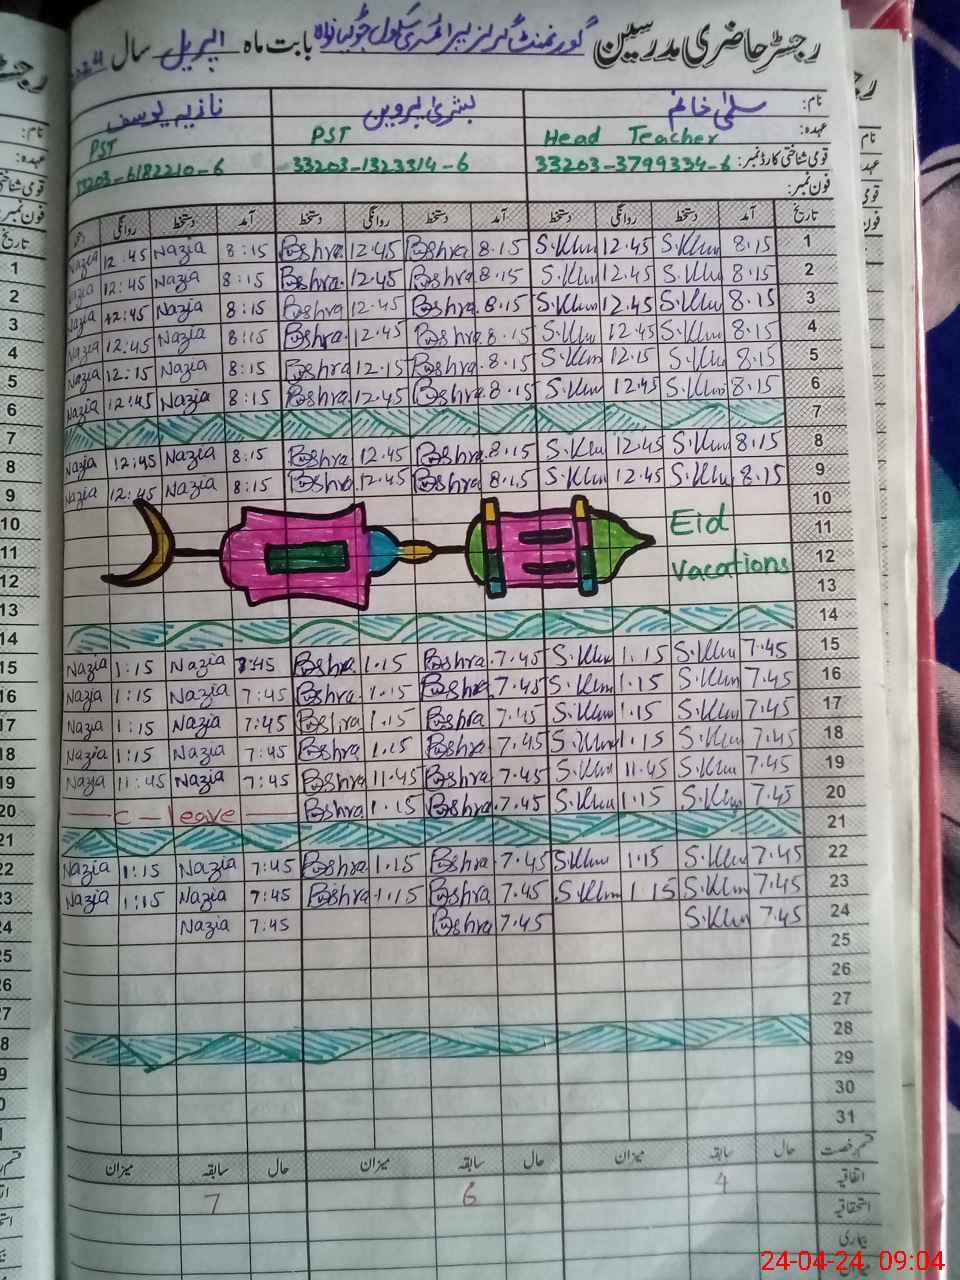 رجسٹر حاضری مدرسین گورنمنٹ گرلز پرائمری سکول بابت ماہ اپریل سال 2024
نام: سلمیٰ خانم بشریٰ پروین نازیہ یوسف
عہدہ: Head Teacher PST PST
قومی شناختی کارڈ نمبر: 33203-3799334-6 33203-1323314-6 33203-6182210-6
فون نمبر:
تاریخ آمد دستخط روانگی دستخط آمد دستخط روانگی دستخط آمد دستخط روانگی
1 8.15 S.Khm 12.45 S.Khm 8.15 Bshra 12.45 Bshra 8:15 Nazia 12:45 Nazia
2 8.15 S.Khm 12.45 S.Khm 8.15 Bshra 12.45 Bshra 8:15 Nazia 12:45 Nazia
3 8.15 S.Khm 12.45 S.Khm 8.15 Bshra 12.45 Bshra 8:15 Nazia 12:45 Nazia
4 8.15 S.Khm 12.45 S.Khm 8.15 Bshra 12.45 Bshra 8:15 Nazia 12:45 Nazia
5 8.15 S.Khm 12.15 S.Khm 8.15 Bshra 12.15 Bshra 8:15 Nazia 12:15 Nazia
6 8.15 S.Khm 12.45 S.Khm 8.15 Bshra 12.45 Bshra 8:15 Nazia 12:45 Nazia
7
8 8.15 S.Khm 12.45 S.Khm 8.15 Bshra 12.45 Bshra 8:15 Nazia 12:45 Nazia
9 8.15 S.Khm 12.45 S.Khm 8.15 Bshra 12.45 Bshra 8:15 Nazia 12:45 Nazia
10
11 Eid
12 vacations
13
14
15 7.45 S.Khm 1.15 S.Khm 7.45 Bshra 1.15 Bshra 7:45 Nazia 1:15 Nazia
16 7.45 S.Khm 1.15 S.Khm 7.45 Bshra 1.15 Bshra 7:45 Nazia 1:15 Nazia
17 7.45 S.Khm 1.15 S.Khm 7.45 Bshra 1.15 Bshra 7:45 Nazia 1:15 Nazia
18 7.45 S.Khm 1.15 S.Khm 7.45 Bshra 1.15 Bshra 7:45 Nazia 1:15 Nazia
19 7.45 S.Khm 11.45 S.Khm 7.45 Bshra 11.45 Bshra 7:45 Nazia 11:45 Nazia
20 7.45 S.Khm 1.15 S.Khm 7.45 Bshra 1.15 Bshra C - leave
21
22 7.45 S.Khm 1.15 S.Khm 7.45 Bshra 1.15 Bshra 7:45 Nazia 1:15 Nazia
23 7.45 S.Khm 1.15 S.Khm 7.45 Bshra 1.15 Bshra 7:45 Nazia 1:15 Nazia
24 7.45 S.Khm 7.45 Bshra 7:45 Nazia
25
26
27
28
29
30
31
قسم رخصت حال سابقہ میزان حال سابقہ میزان حال سابقہ میزان
اتفاقیہ 4 6 7
استحقاقیہ
بیماری
24-04-24 09:04